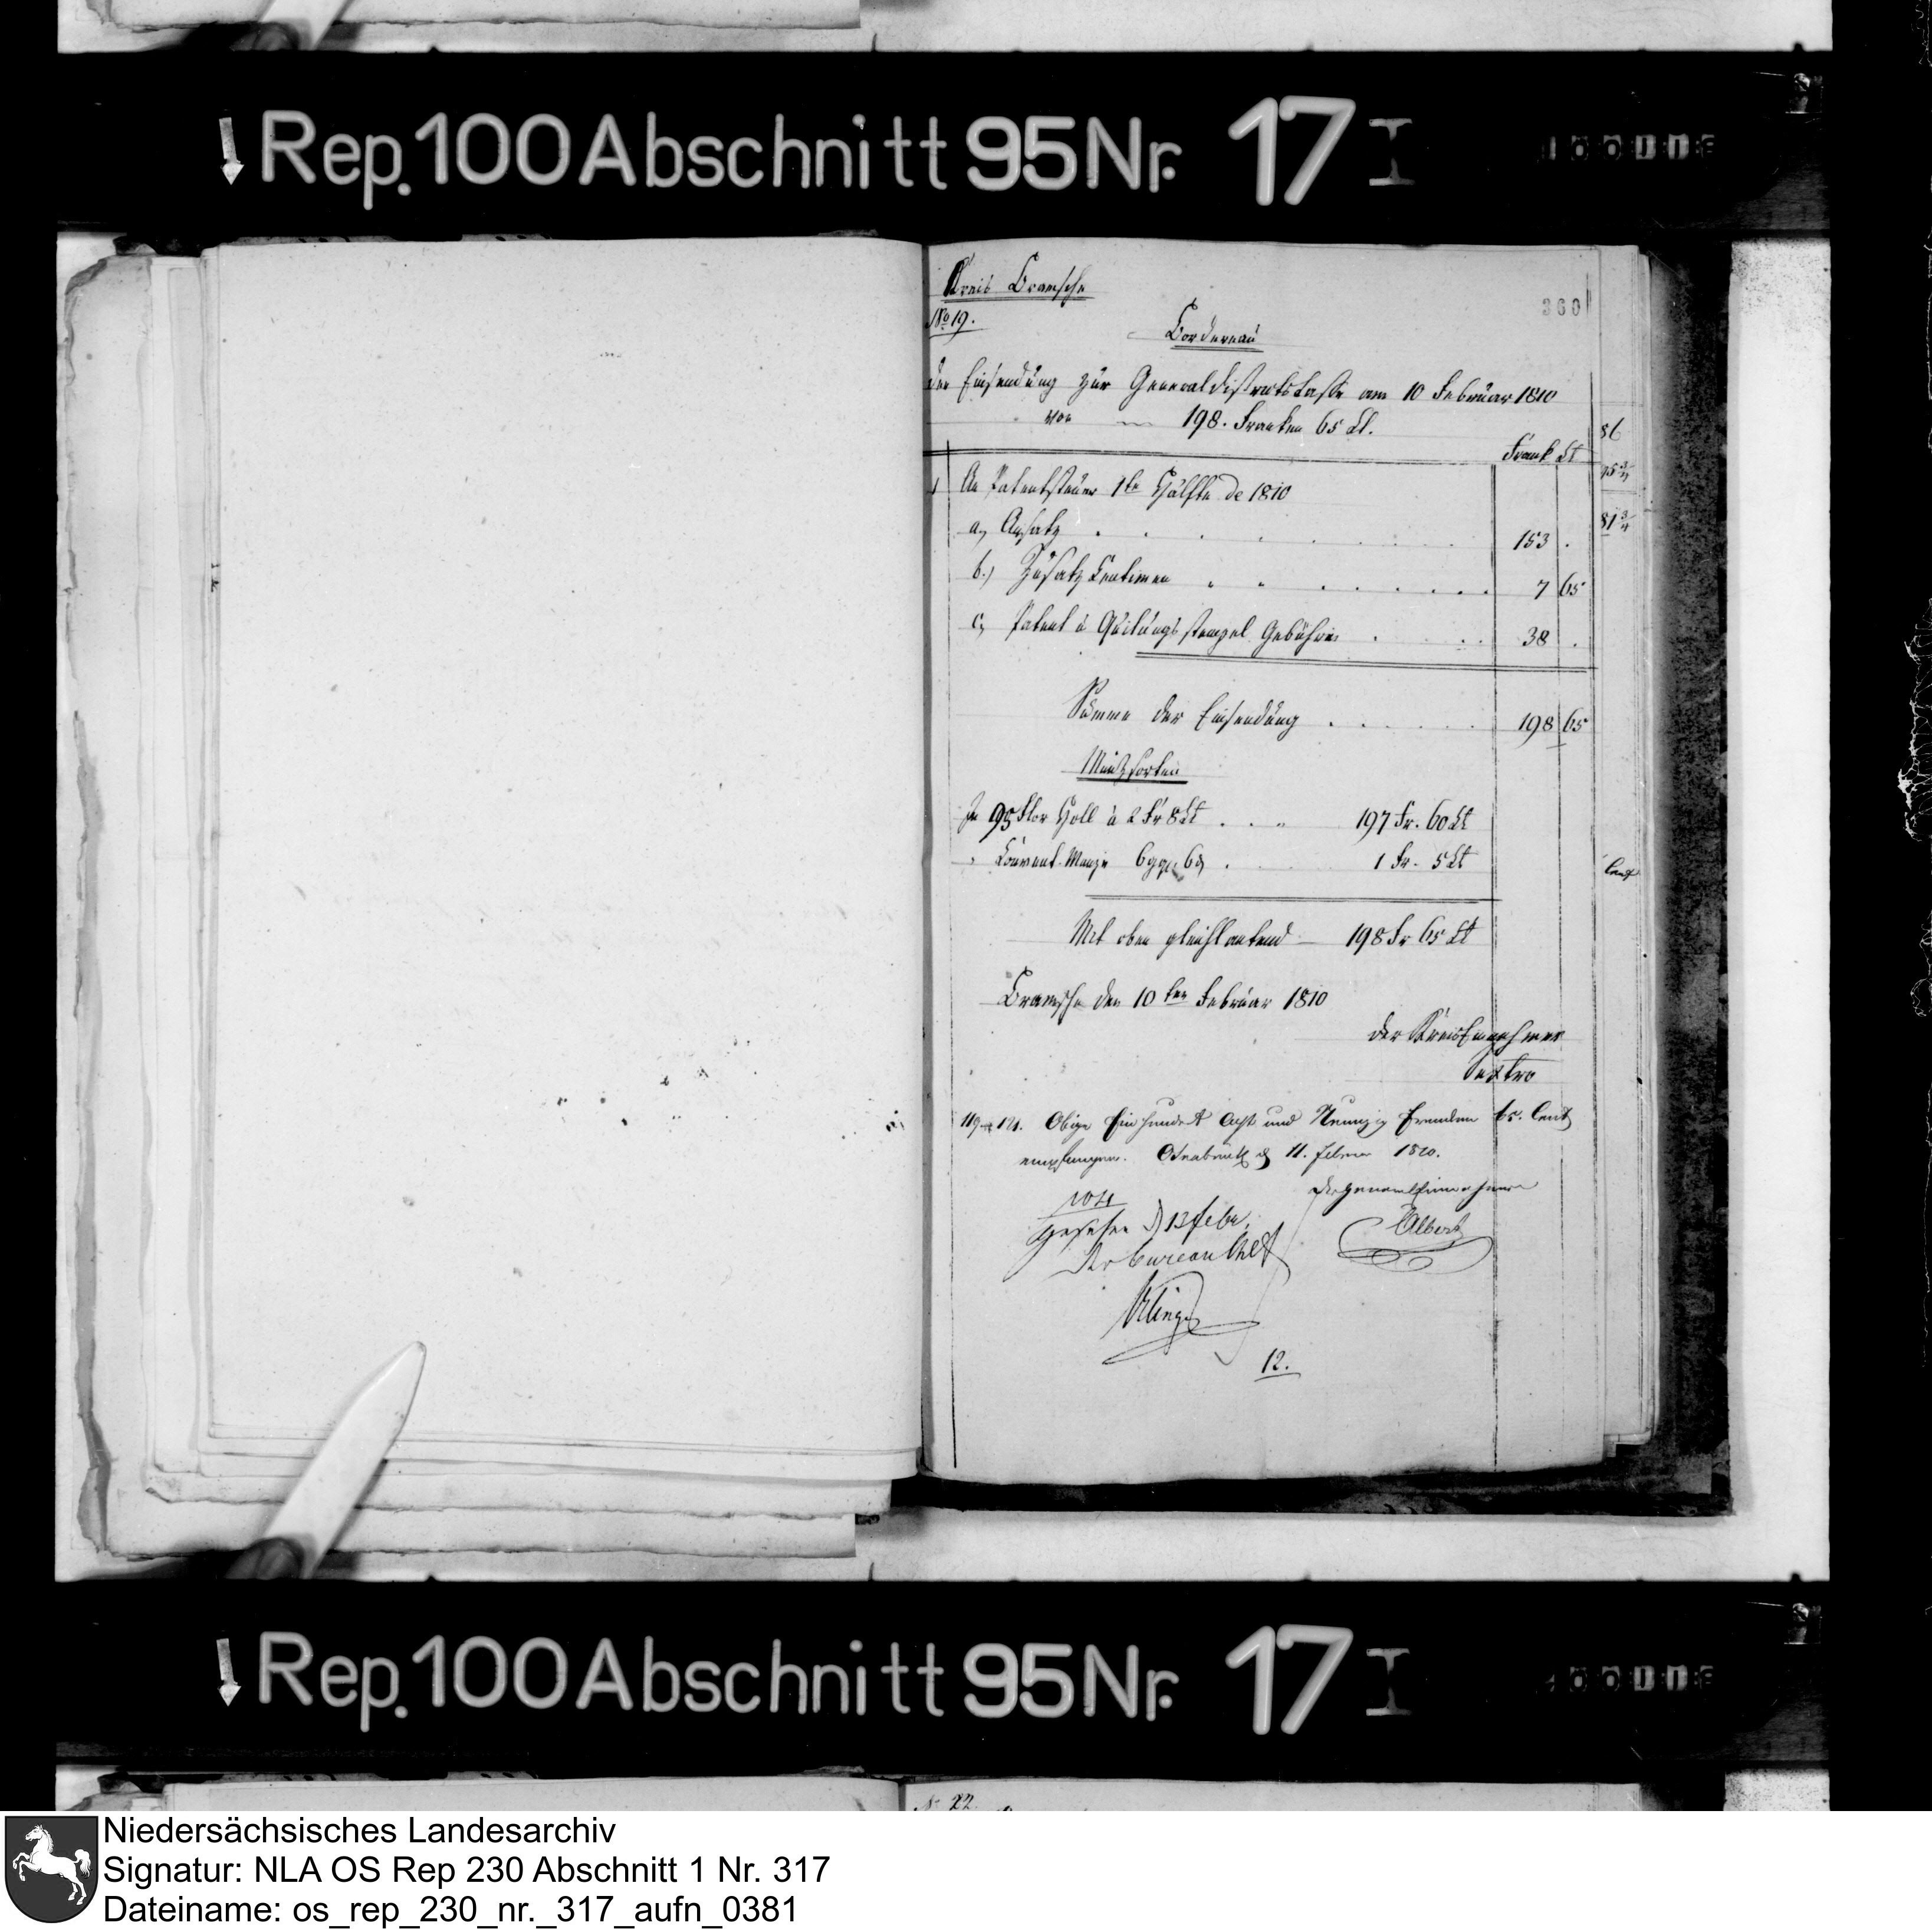 Rep. 100 Abschnitt 95 Nr. 17 I
Kreis Bramsche
360
No 19.
Bordereau
der Einsendung zur Generaldistrictskasse am 10 Februar 1810
von 198. Franken 65 Ct.
Frank Ct
1 An Patentsteuer 1te Hälfte de 1810
a, Ansatz 153 .
b.) Zusatz Centimen 7 65
c, Patent u Quitungs stempel Gebühren 38 .
Summe der Einsendung 198 65
Müntzsorten
In 95 Flor Holl à 2 Fr 8 Ct 197 Fr. 60 Ct
" Convent. Münze 6 ggr 6 d 1 Fr. 5 Ct
Mit oben gleichlautend 198 Fr 65 Ct
Bramsche den 10ten Februar 1810
der Kreis Einnehmer
Sextro
Obige Ein hundert Acht und Neunzig Franken 65. Cent
empfangen. Osnabrück d 11. Febru 1810.
Der General Einnehmer
Albert
gesehen d 13 Febr.
Der Bureau Chef
12.
86
95 3/4
81 3/4
Cent
Rep. 100 Abschnitt 95 Nr. 17 I
No 22
Niedersächsisches Landesarchiv
Signatur: NLA OS Rep 230 Abschnitt 1 Nr. 317
Dateiname: os_rep_230_nr._317_aufn_0381